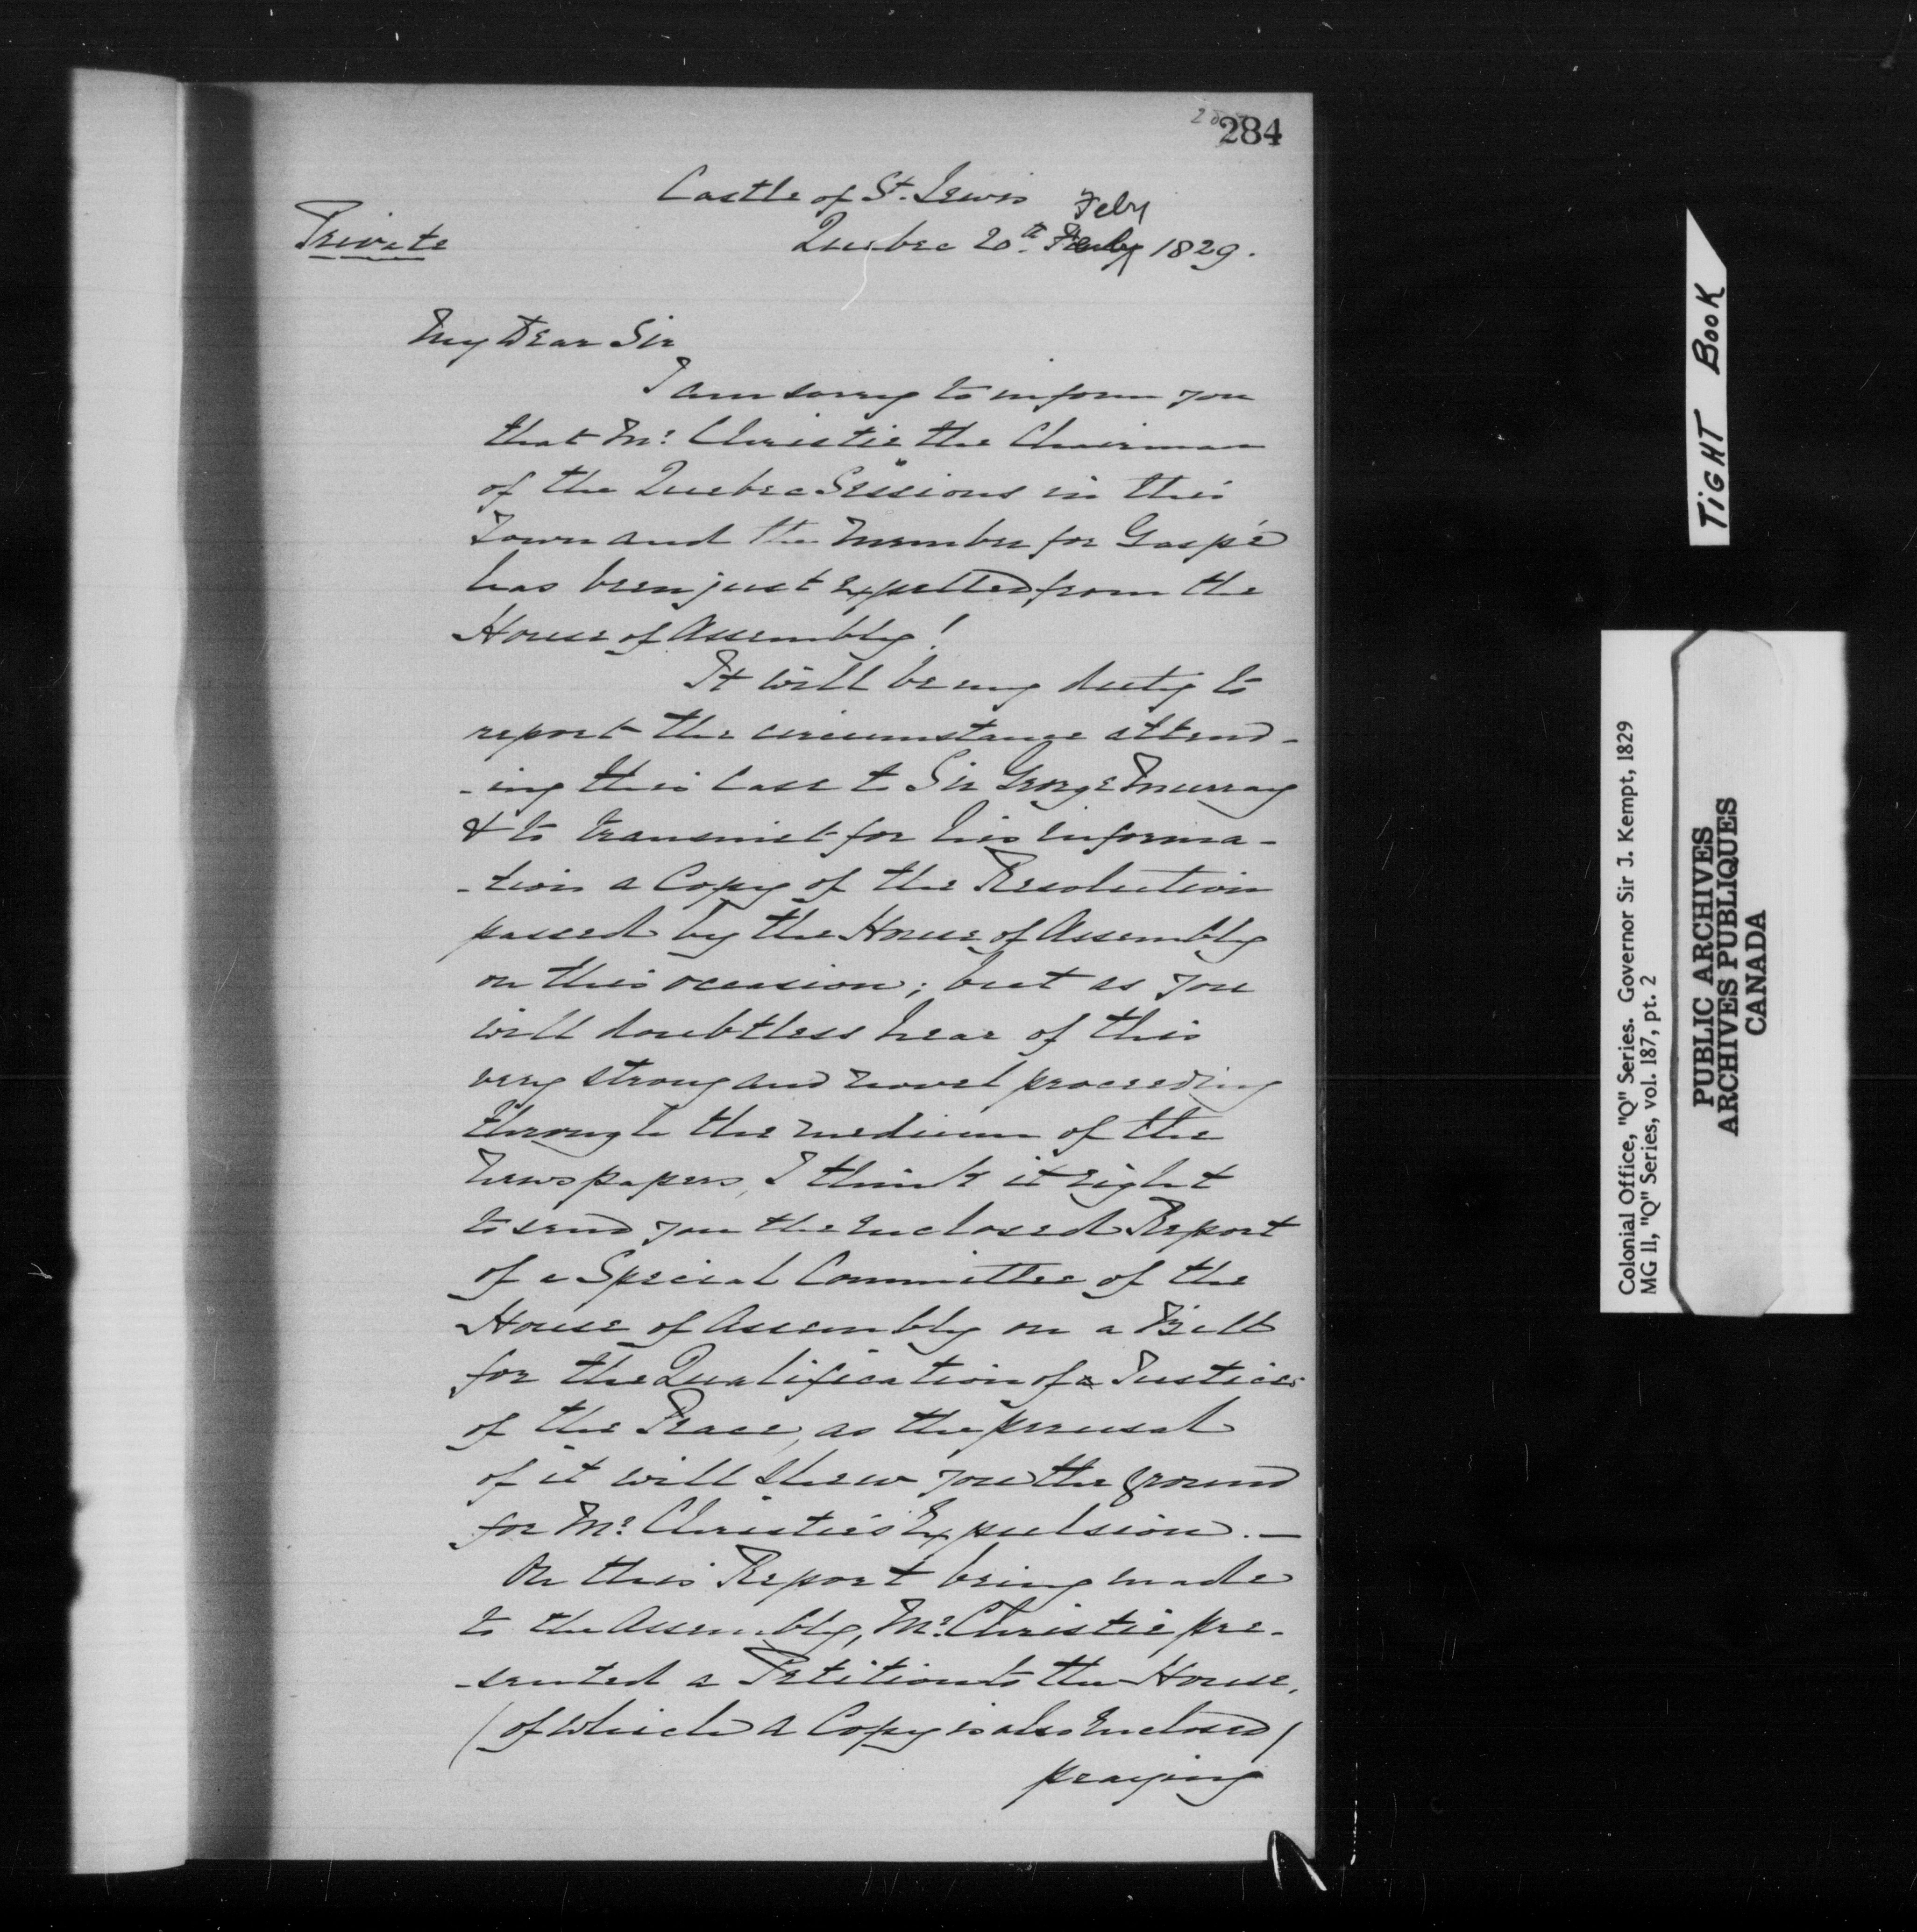 284
Castle of St. Lewis
Private
Feby
Quebec 20th 1829.
My Dear Sir
I am sorry to inform you
that Mr. Christie the Chairman
of the Quebec Sessions in this
Town and the Member for Gaspé
has been just expelled from the
House of Assembly!
It will be my duty to
report the circumstance attend-
-ing this Case to Sir George Murray
& to transmit for his informa-
-tion a Copy of the Resolution
passed by the House of Assembly
on this occasion; but as you
will doubtless hear of this
very strong and novel proceeding
through the medium of the
Newspapers, I think it right
to send you the enclosed Report
of a Special Committee of the
House of Assembly on a Bill
for the Qualification of Justices
of the Peace, as the perusal
of it will shew you the ground
for Mr. Christie's Expulsion. —
On this Report being made
to the Assembly, Mr. Christie pre-
-sented a Petition to the House,
(of which a Copy is also Enclosed)
praying
TIGHT BOOK
Colonial Office, "Q" Series. Governor Sir J. Kempt, 1829
MG 11, "Q" Series, vol. 187, pt. 2
PUBLIC ARCHIVES
ARCHIVES PUBLIQUES
CANADA